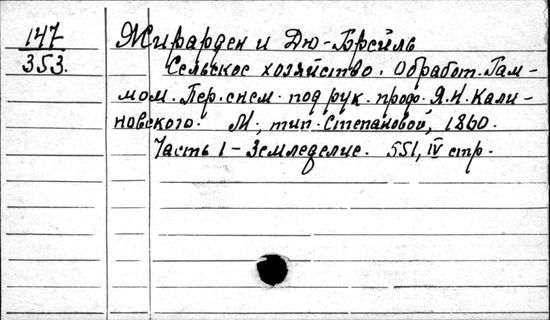 147
353.
Жирарден и Дю-Брейль
Сельское хозяйство. Обработ. Гам-
мом. Пер. с нем. под рук. проф. Я. Н. Кали-
новского. М., тип. Степановой, 1860.
Часть 1 - Земледелие. 551, IV стр.